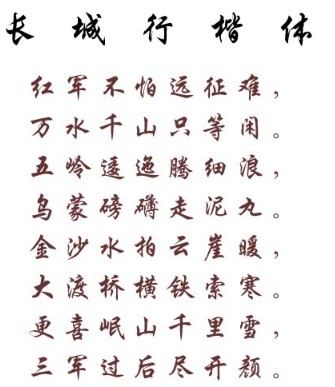 长城行楷体
红军不怕远征难，
万水千山只等闲。
五岭逶迤腾细浪，
乌蒙磅礴走泥丸。
金沙水拍云崖暖，
大渡桥横铁索寒。
更喜岷山千里雪，
三军过后尽开颜。